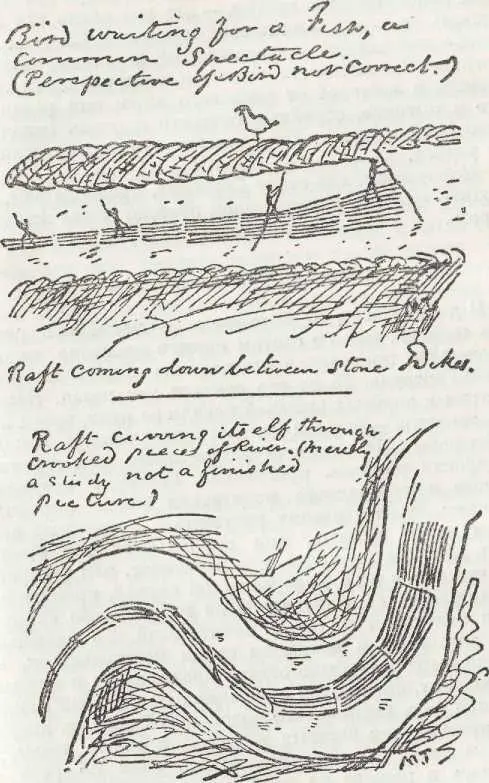 Bird waiting for a Fish, a
common Spectacle.
(Perspective of Bird not correct.)
Raft coming down between stone Dikes.
Raft curving itself through
crooked pieces of River. (Merely
a study not a finished
picture)
MT